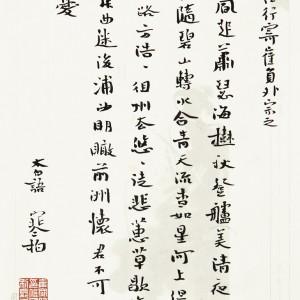 江行寄崔員外宗之
風起蕭瑟海樹秋登艫美清夜
隨碧山轉水合青天流杳如星河上但
路方浩〻徂川去悠〻徒悲蕙草歇
岸曲迷後浦沙明瞰前洲懷君不可
憂
太白語 寒柏